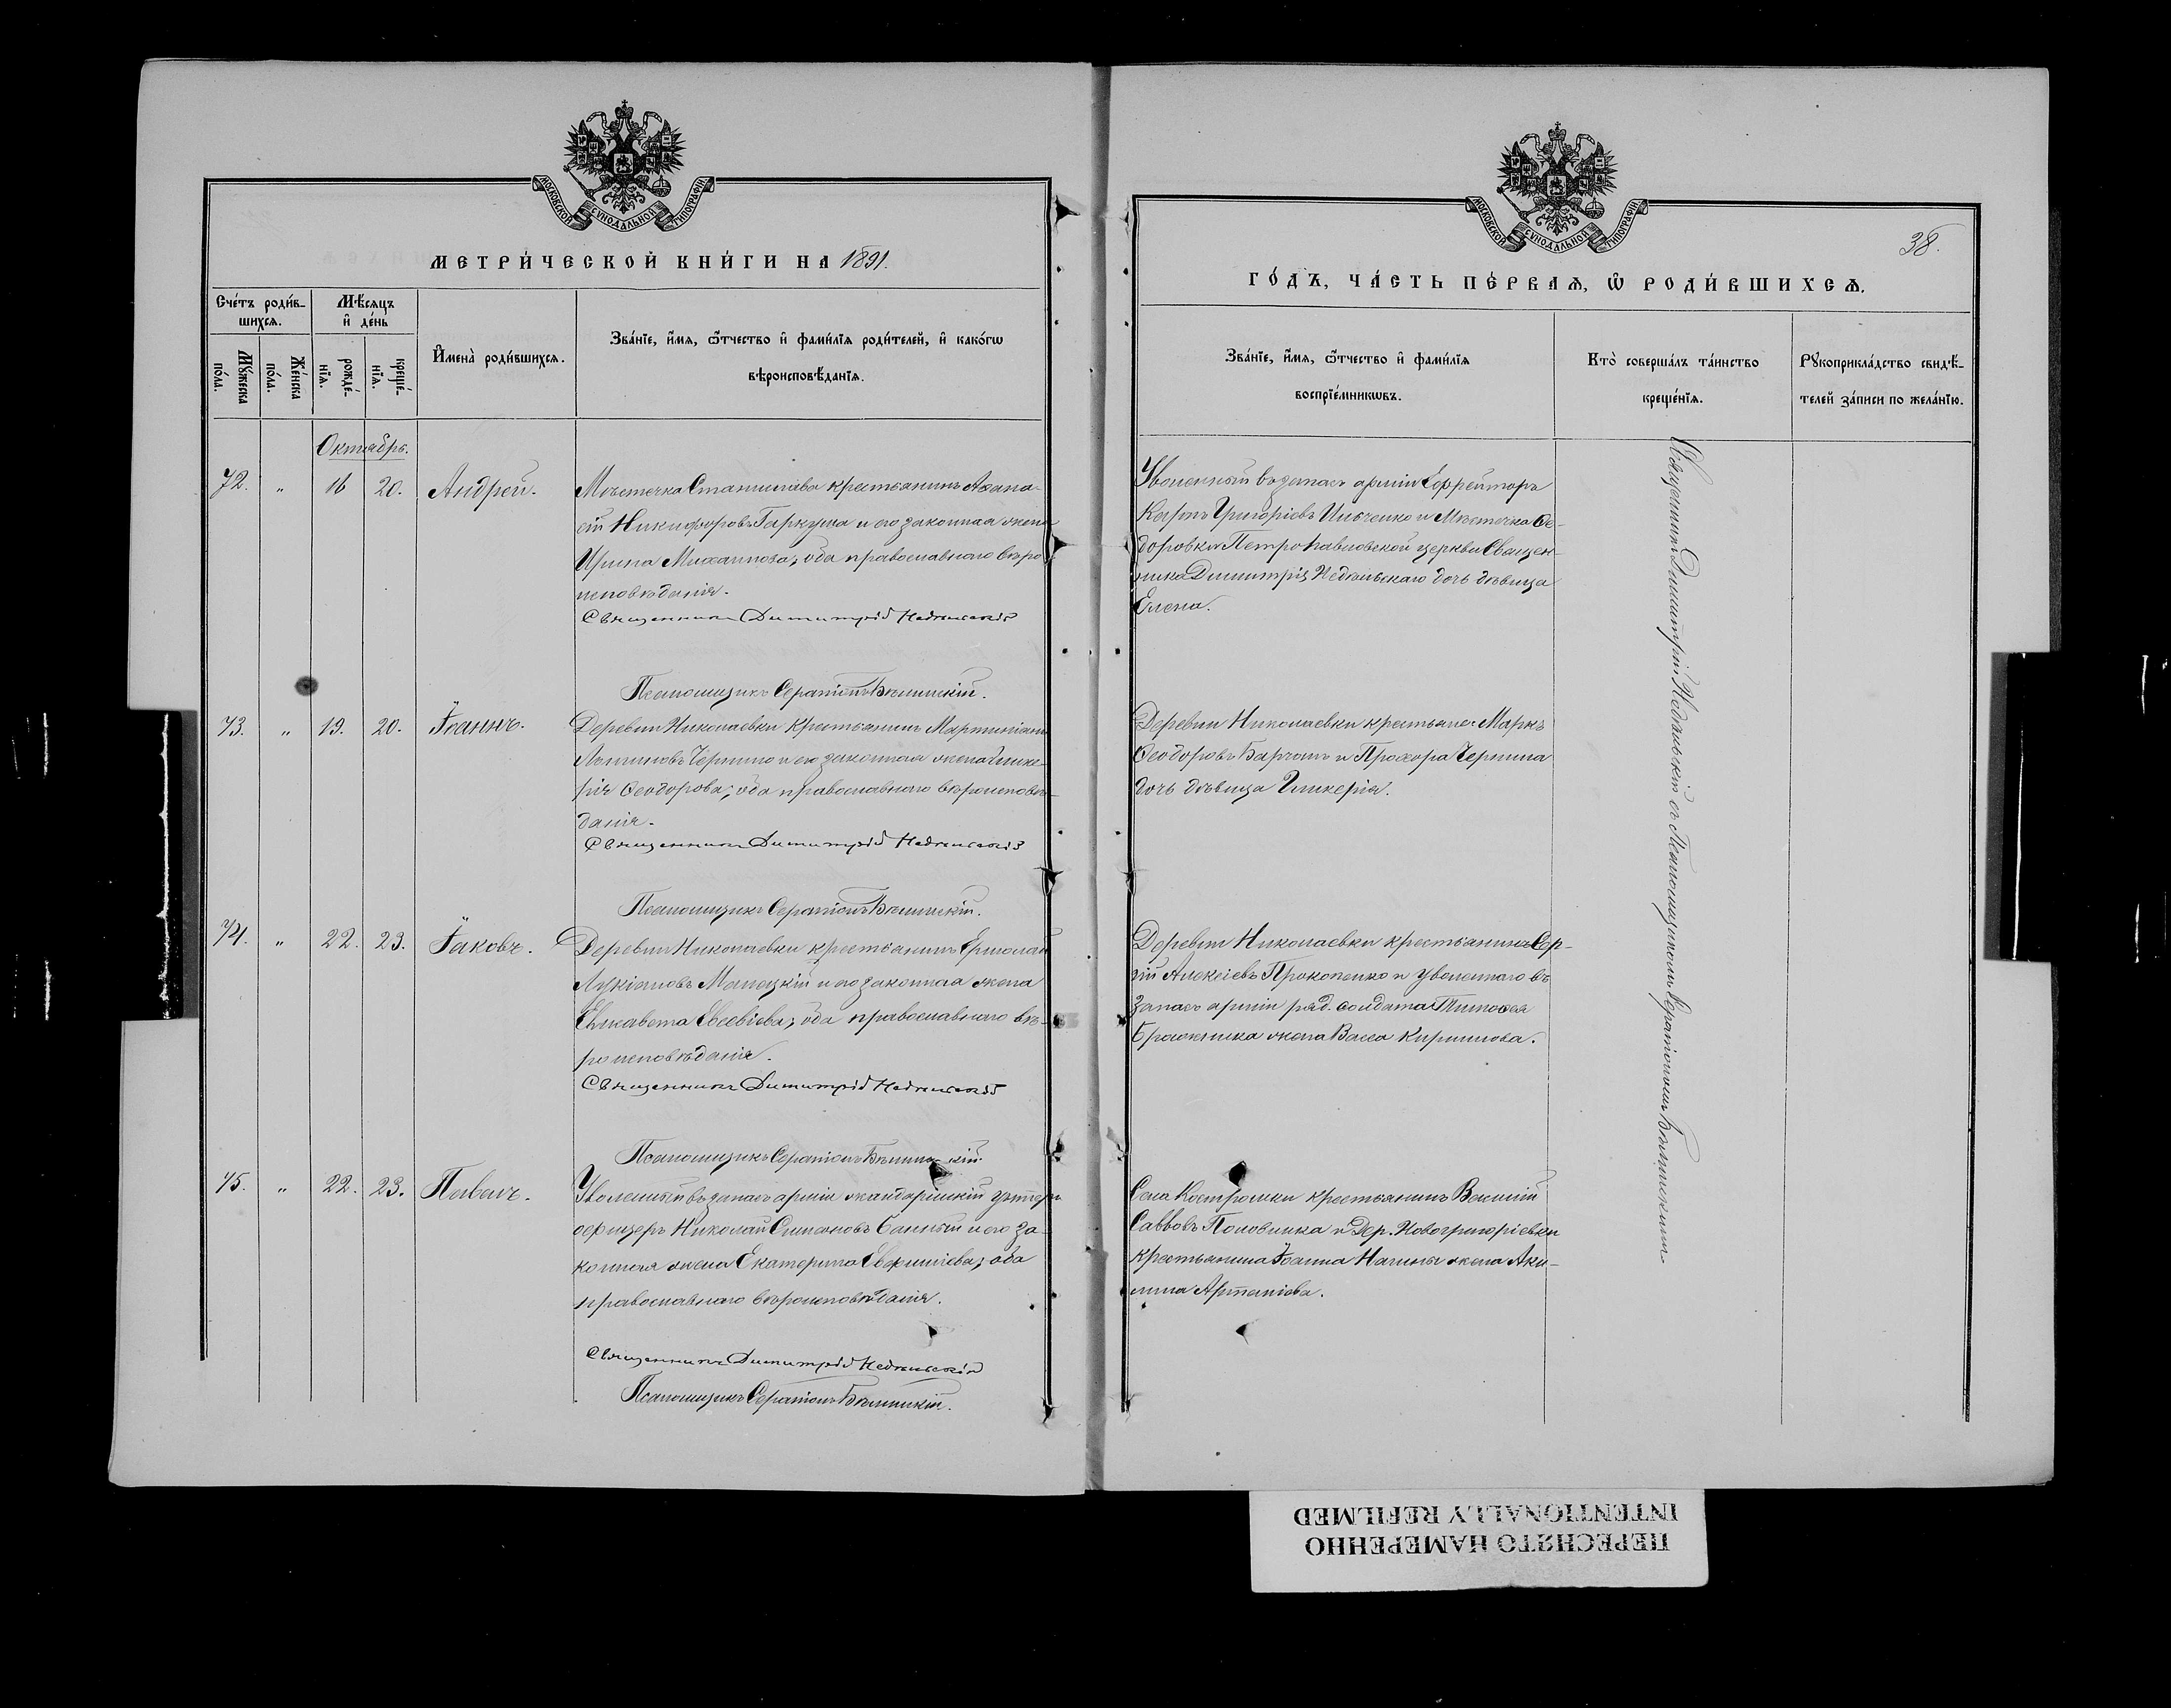 МОСКОВСКОЙ СѴНОДАЛЬНОЙ ТИПОГРАФІИ
МЕТРИ́ЧЕСКОЙ КНИ́ГИ НА 1891.
Сче́тъ роди́в-
шихсѧ.
Мѣ́сѧцъ
и҆ де́нь
Мꙋ́жеска
по́ла.
Же́нска
по́ла.
рожде́-
нїѧ.
креще́-
нїѧ.
И҆мена̀ роди́вшихсѧ.
Зва́нїе, и҆́мѧ, ѻ҆́тчество и҆ фами́лїѧ роди́телей, и҆ како́гѡ
вѣроисповѣ́данїѧ.
Октябрь.
72. " 16 20. Андрей.
Мѣстечка Станислава крестьянинъ Аѳана-
сій Никифоровъ Гаркуша и его законная жена
Ирина Михаилова; оба православнаго вѣро
исповѣданія.
Священникъ Димитрій Недѣльскій
Псаломщикъ Серапіонъ Бѣлинскій.
73. " 19. 20. Іоаннъ.
Деревни Николаевки крестьянинъ Мартиніанъ
Чернино и его законная жена Глике-
рія Ѳеодорова; оба православнаго вѣроисповѣ-
данія.
Священникъ Димитрій Недѣльскій
Псаломщикъ Серапіонъ Бѣлинскій.
74. " 22. 23. Іаковъ.
Деревни Николаевки крестьянинъ Ермолай
Лукіановъ и его законная жена
Елисавета Евсевіева; оба православнаго вѣ-
роисповѣданія.
Священникъ Димитрій Недѣльскій
Псаломщикъ Серапіонъ Бѣлинскій
75. " 22. 23. Павелъ.
Уволенный въ запасъ арміи жандармскій унтеръ
офицеръ Николай и его за-
конная жена Екатерина Евфиміева; оба
православнаго вѣроисповѣданія.
Священникъ Димитрій Недѣльскій
Псаломщикъ Серапіонъ Бѣлинскій.
МОСКОВСКОЙ СѴНОДАЛЬНОЙ ТИПОГРАФІИ
38.
ГО́ДЪ, ЧА́СТЬ ПЕ́РВАѦ, Ѡ҆ РОДИ́ВШИХСѦ.
Зва́нїе, и҆́мѧ, ѻ҆́тчество и҆ фами́лїѧ
воспрїе́мникѡвъ.
Кто̀ соверша́лъ та́инство
креще́нїѧ.
Рꙋкоприкла́дство свидѣ́-
телей за́писи по жела́нїю.
Уволенный въ запасъ арміи Ефрейторъ
Карпъ Григоріевъ Ильченко и Мѣстечка Ѳе-
доровки Петропавловской церкви Священ-
ника Димитрія Недѣльскаго дочь дѣвица
Елена.
Деревни Николаевки крестьяне: Маркъ
Ѳеодоровъ и Прохора Чернина
дочь дѣвица Гликерія.
Деревни Николаевки крестьянинъ Сер-
гій Алексіевъ Прокопенко и уволеннаго въ
запасъ арміи ряд. солдата Тимоѳея
жена Васса Кирилова.
Села Костромки крестьянинъ
Савковъ Половинка и Дер. Новогригоріевки
крестьянина Іоанна жена Аки-
лина
Священникъ Димитрій Недѣльскій съ Псаломщикомъ Серапіономъ Бѣлинскимъ
ПЕРЕСНЯТО НАМЕРЕННО
INTENTIONALLY REFILMED